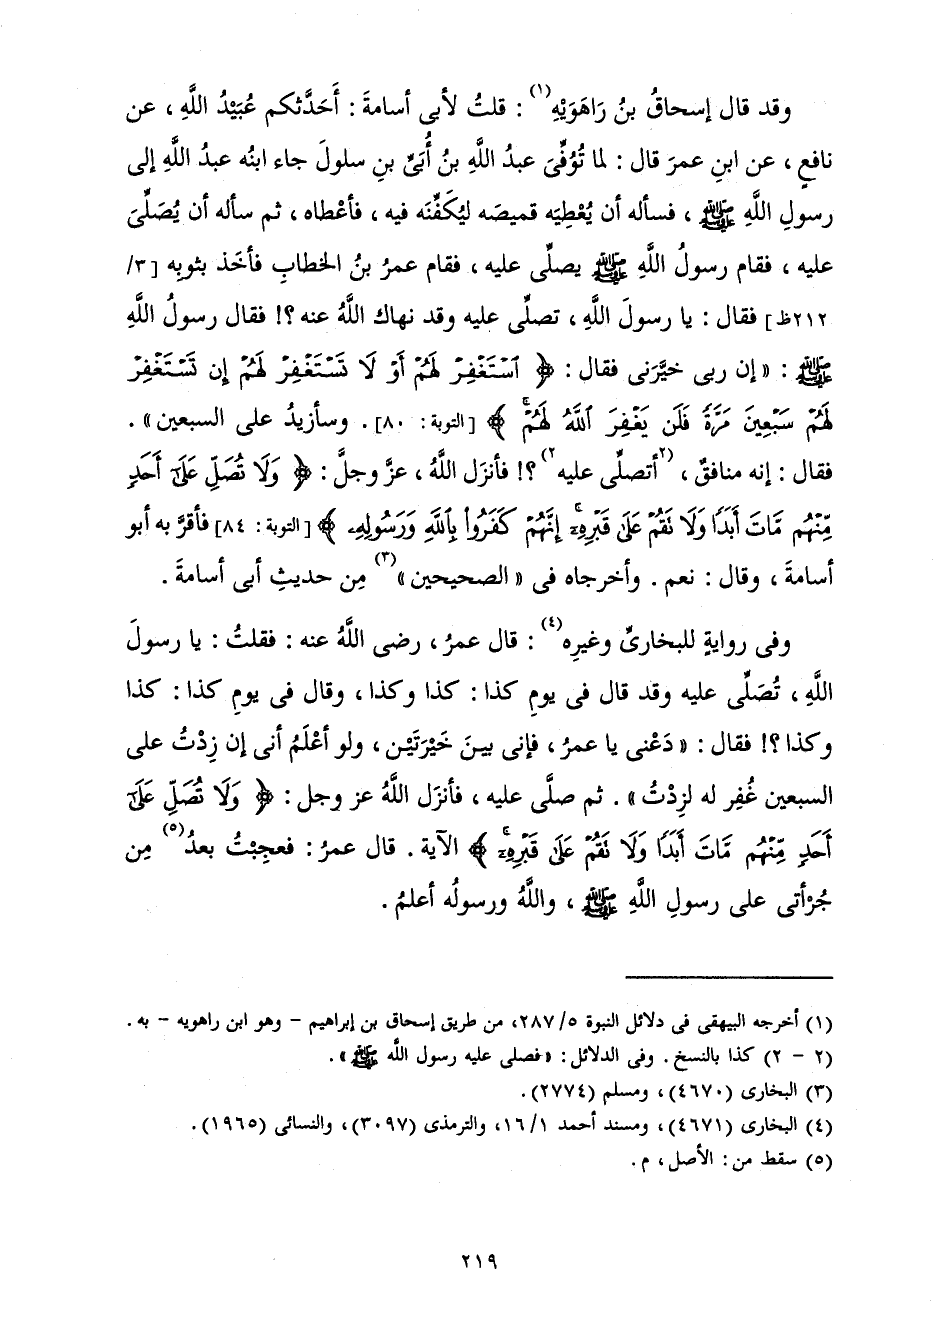 وقد قال إسحاقُ بنُ رَاهَوَيْهِ(١) : قلتُ لأبى أسامةَ : أَحَدَّثكم عُبَيْدُ اللَّهِ ، عن
نافعٍ ، عن ابنِ عمرَ قال : لما تُوُفِّىَ عبدُ اللَّهِ بنُ أُبَىِّ بنِ سلولَ جاء ابنُه عبدُ اللَّهِ إلى
رسولِ اللَّهِ ﷺ ، فسأله أن يُعْطِيَه قميصَه ليُكَفِّنَه فيه ، فأعْطاه ، ثم سأله أن يُصَلِّىَ
عليه ، فقام رسولُ اللَّهِ ﷺ يصلِّى عليه ، فقام عمرُ بنُ الخطابِ فأخَذ بثوبِه [٣/
٢١٢ظ] فقال : يا رسولَ اللَّهِ ، تصلِّى عليه وقد نهاك اللَّهُ عنه ؟! فقال رسولُ اللَّهِ
ﷺ : «إن ربى خيَّرنى فقال : ﴿ ٱسْتَغْفِرْ لَهُمْ أَوْ لَا تَسْتَغْفِرْ لَهُمْ إِن تَسْتَغْفِرْ
لَهُمْ سَبْعِينَ مَرَّةً فَلَن يَغْفِرَ ٱللَّهُ لَهُمْۚ ﴾ [التوبة: ٨٠] . وسأزيدُ على السبعين» .
فقال : إنه منافقٌ ، (٢أتصلِّى عليه٢) ؟! فأنزَل اللَّهُ ، عزَّ وجلَّ : ﴿ وَلَا تُصَلِّ عَلَىٰٓ أَحَدٍ
مِّنْهُم مَّاتَ أَبَدًا وَلَا نَقُمْ عَلَىٰ قَبْرِهِۦٓۚ إِنَّهُمْ كَفَرُوا۟ بِٱللَّهِ وَرَسُولِهِۦ ﴾ [التوبة: ٨٤] فأقرَّ به أبو
أسامةَ ، وقال : نعم . وأخرجاه فى « الصحيحين»(٣) مِن حديثِ أبى أسامةَ .
وفى روايةٍ للبخارىِّ وغيرِه(٤) : قال عمرُ ، رضى اللَّهُ عنه : فقلتُ : يا رسولَ
اللَّهِ ، تُصَلِّى عليه وقد قال فى يومِ كذا : كذا وكذا ، وقال فى يومِ كذا : كذا
وكذا ؟! فقال : «دَعْنى يا عمرُ ، فإنى بينَ خَيْرَتَيْن ، ولو أعْلَمُ أنى إن زِدْتُ على
السبعين غُفِر له لزِدْتُ» . ثم صلَّى عليه ، فأنزَل اللَّهُ عز وجل : ﴿ وَلَا تُصَلِّ عَلَىٰٓ
أَحَدٍ مِّنْهُم مَّاتَ أَبَدًا وَلَا نَقُمْ عَلَىٰ قَبْرِهِۦٓۚ ﴾ الآية . قال عمرُ : فعجِبْتُ بعدُ(٥) مِن
جُرْأتى على رسولِ اللَّهِ ﷺ ، واللَّهُ ورسولُه أعلمُ .
(١) أخرجه البيهقى فى دلائل النبوة ٢٨٧/٥، من طريق إسحاق بن إبراهيم - وهو ابن راهويه - به .
(٢ - ٢) كذا بالنسخ . وفى الدلائل : «فصلى عليه رسول اللَّه ﷺ» .
(٣) البخارى (٤٦٧٠) ، ومسلم (٢٧٧٤) .
(٤) البخارى (٤٦٧١) ، ومسند أحمد ١٦/١، والترمذى (٣٠٩٧) ، والنسائى (١٩٦٥) .
(٥) سقط من : الأصل ، م .
٢١٩